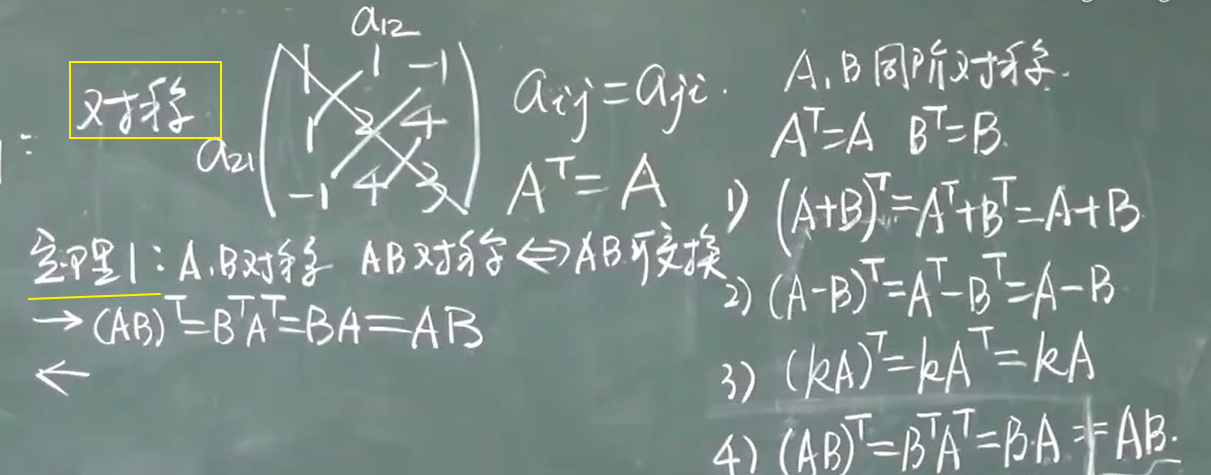 a₁₂
对称
a₂₁
1 1 -1
1 2 4
-1 4 3
aᵢⱼ=aⱼᵢ.
Aᵀ=A
定理1:A,B对称 AB对称⇔AB可交换
→(AB)ᵀ=BᵀAᵀ=BA=AB
←
A,B同阶对称.
Aᵀ=A Bᵀ=B.
1) (A+B)ᵀ=Aᵀ+Bᵀ=A+B
2) (A-B)ᵀ=Aᵀ-Bᵀ=A-B
3) (kA)ᵀ=kAᵀ=kA
4) (AB)ᵀ=BᵀAᵀ=BA≠AB.